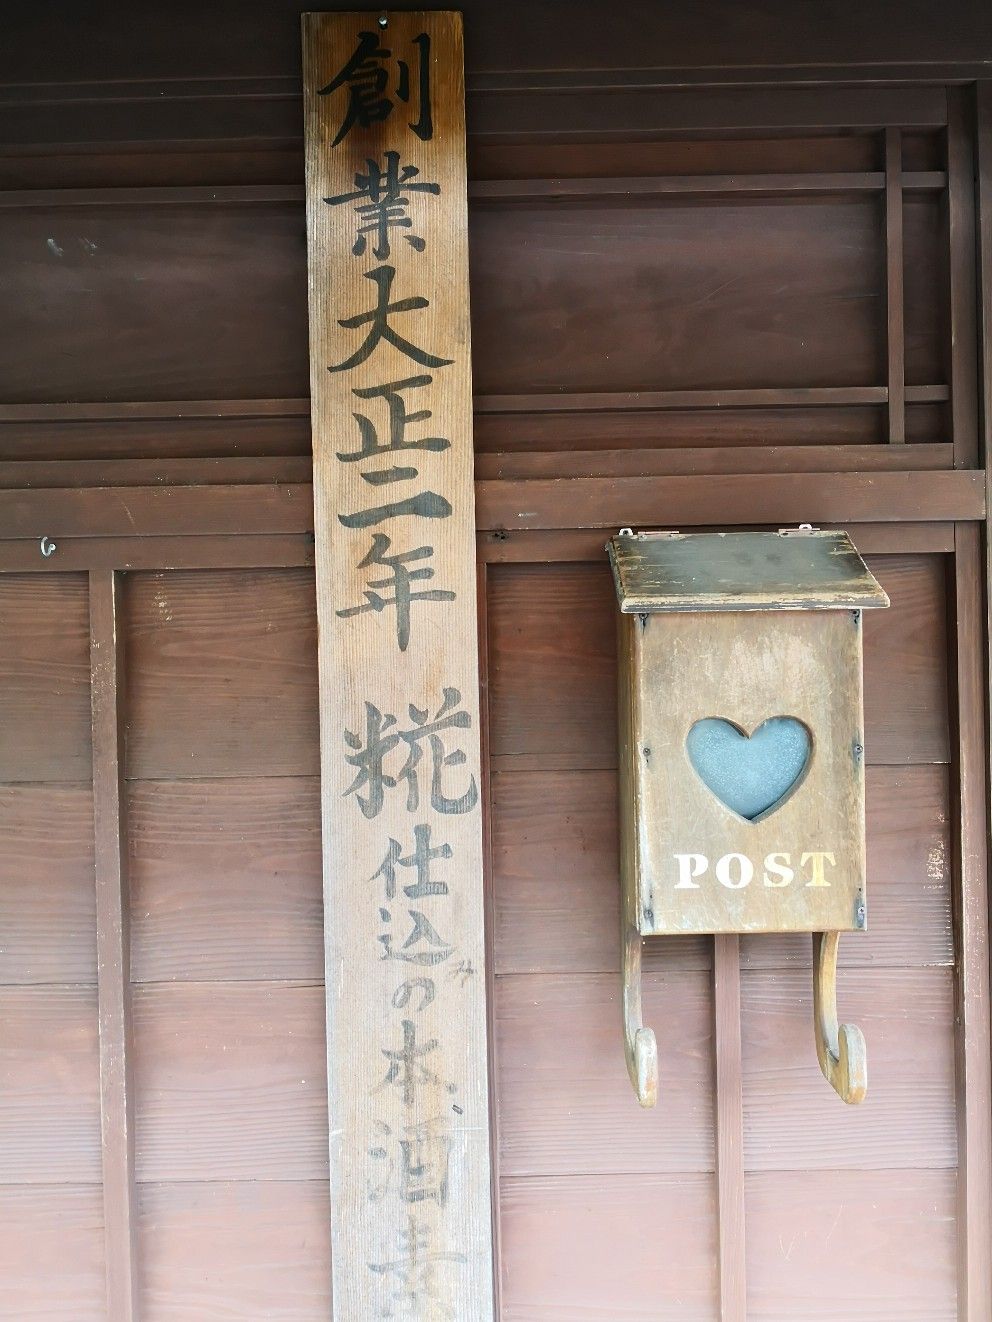 創業大正二年 糀仕込みの本酒素
POST